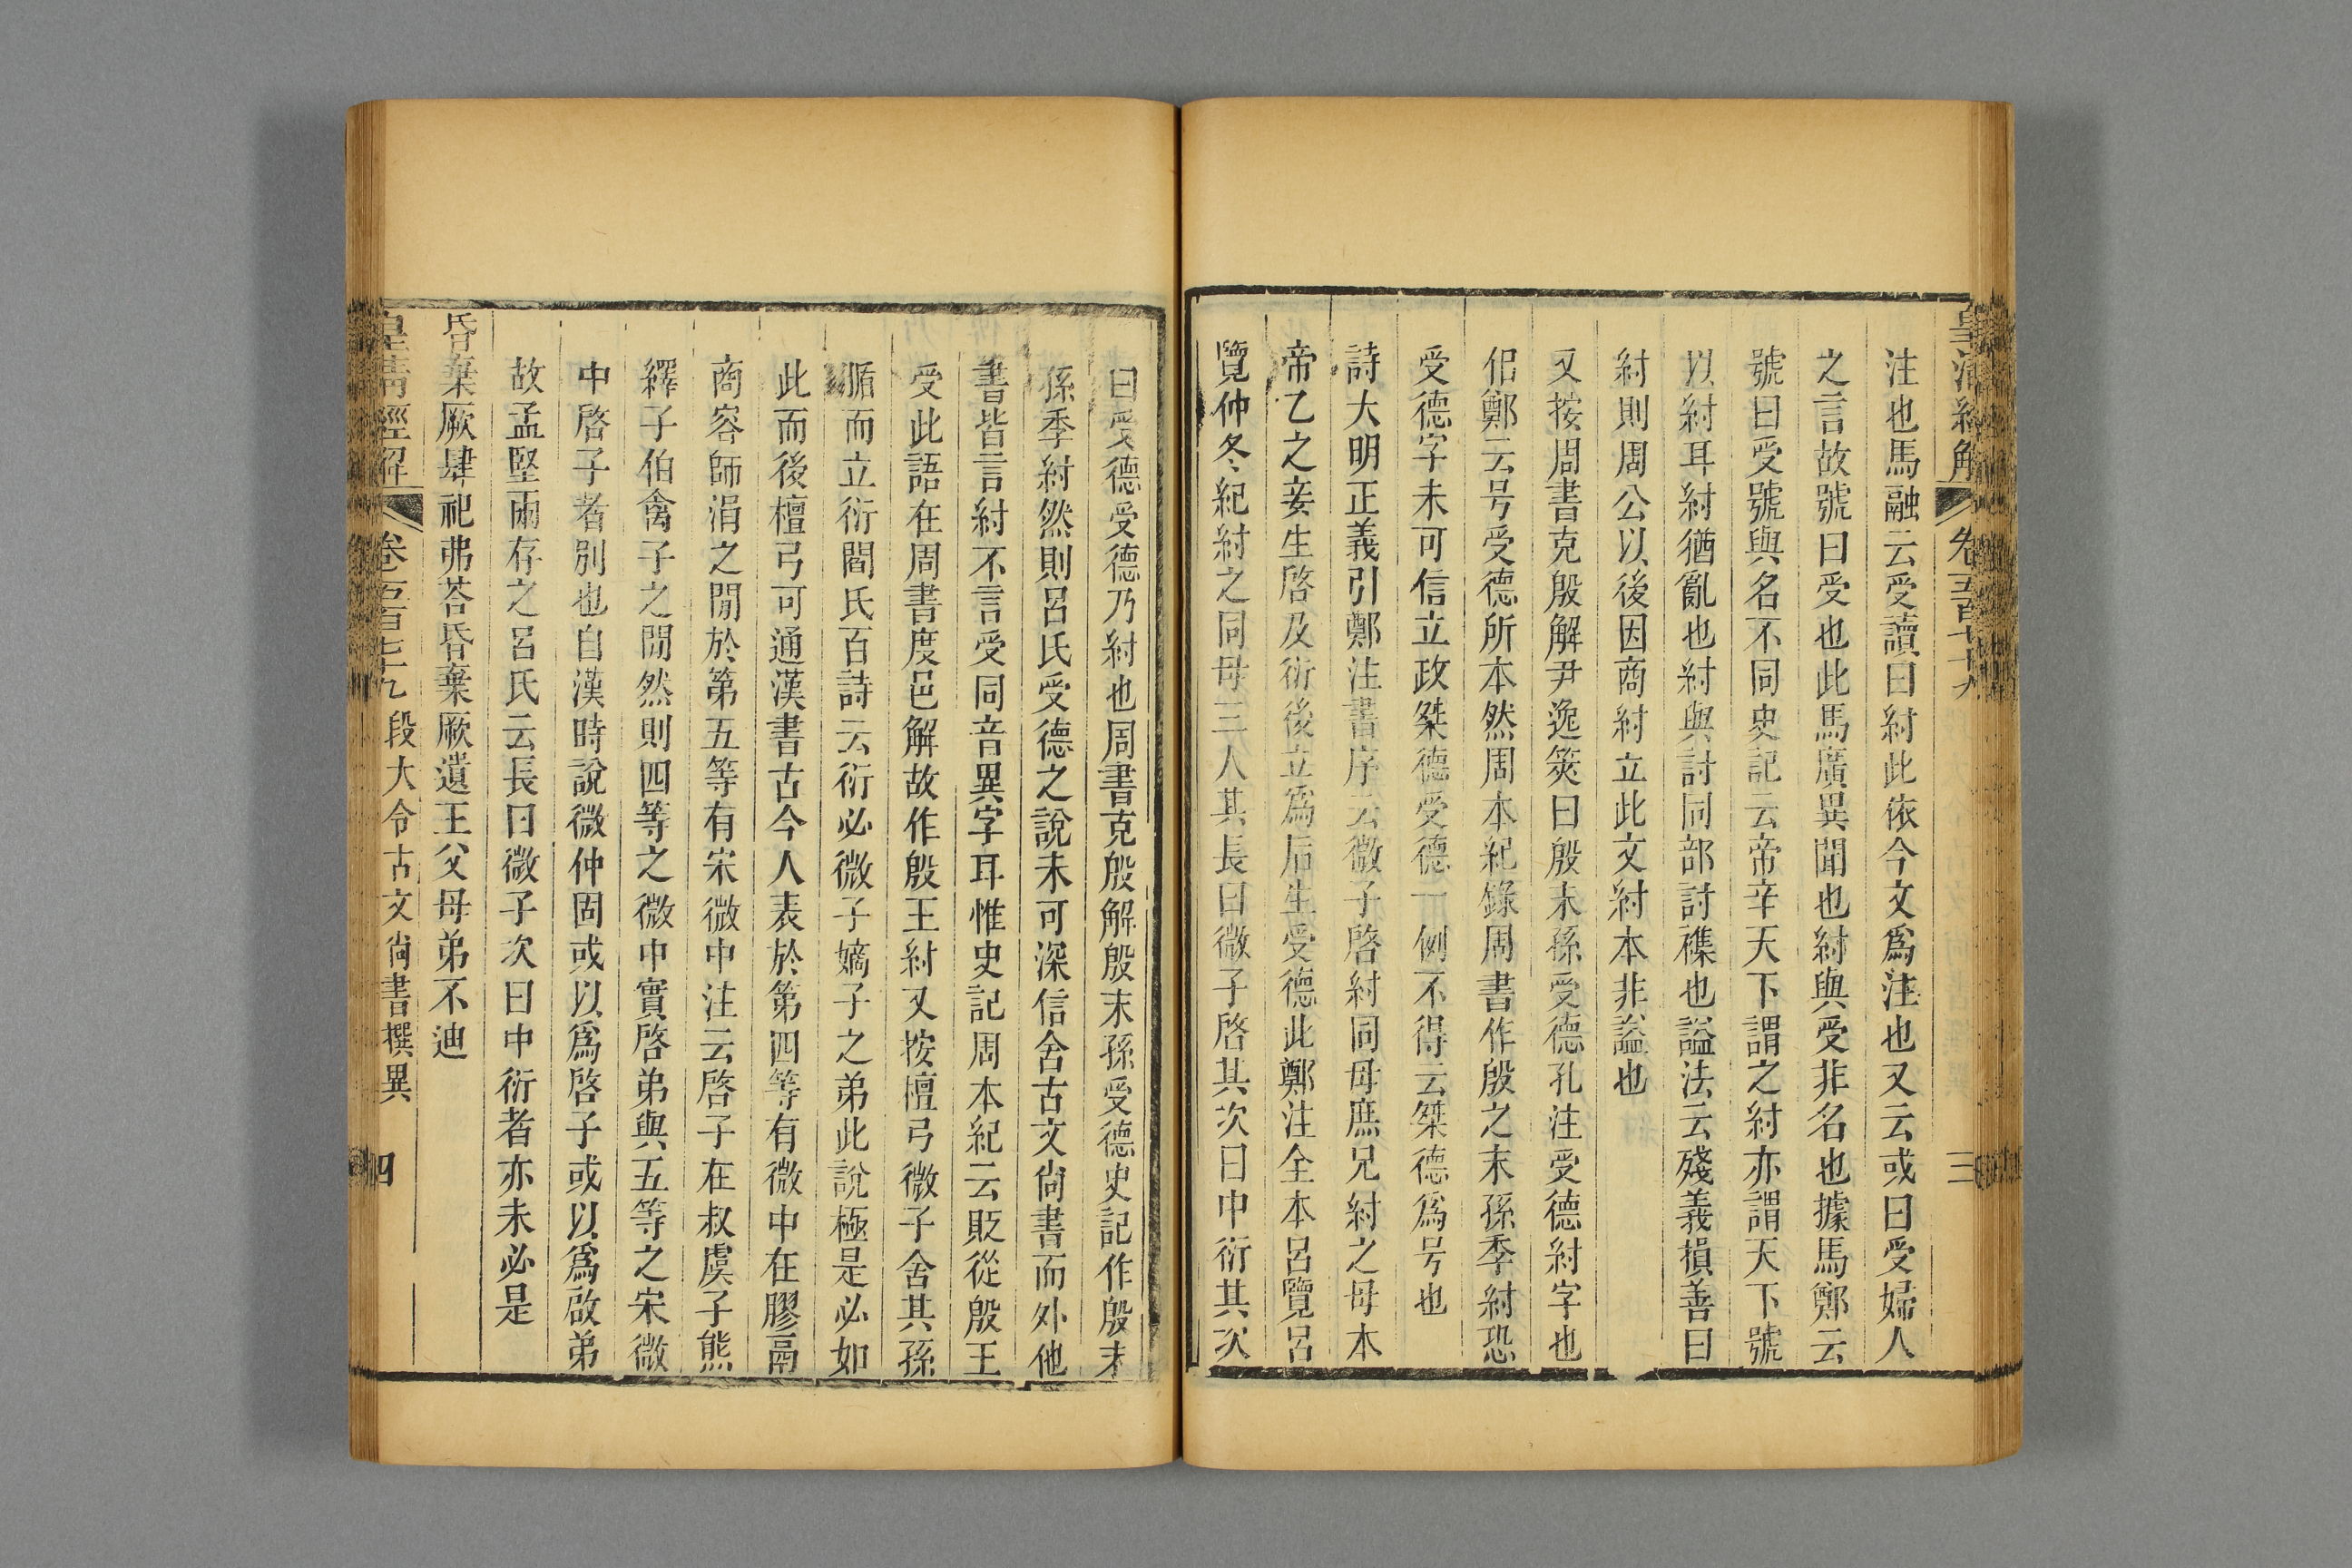 皇清經解 卷五百七十九 三
注也馬融云受讀曰紂此依今文爲注也又云或曰受婦人
之言故號曰受也此馬廣異聞也紂與受非名也據馬鄭云
號曰受號與名不同史記云帝辛天下謂之紂亦謂天下號
以紂耳紂猶亂也紂與討同部討襍也謚法云殘義損善曰
紂則周公以後因商紂立此文紂本非謚也
又按周書克殷解尹逸筴曰殷末孫受德孔注受德紂字也
侣鄭云号受德所本然周本紀錄周書作殷之末孫季紂恐
受德字未可信立政桀德受德一例不得云桀德爲号也
詩大明正義引鄭注書序云微子啓紂同母庶兄紂之母本
帝乙之妾生啓及衍後立爲后生受德此鄭注全本呂覽呂
覽仲冬紀紂之同母三人其長曰微子啓其次曰中衍其次
曰受德受德乃紂也周書克殷解殷末孫受德史記作殷末
孫季紂然則呂氏受德之說未可深信舍古文尙書而外他
書皆言紂不言受同音異字耳惟史記周本紀云貶從殷王
受此語在周書度邑解故作殷王紂又按檀弓微子舍其孫
腯而立衍閻氏百詩云衍必微子嫡子之弟此說極是必如
此而後檀弓可通漢書古今人表於第四等有微中在膠鬲
商容師涓之閒於第五等有宋微中注云啓子在叔虞子熊
繹子伯禽子之閒然則四等之微中實啓弟與五等之宋微
中啓子者別也自漢時說微仲固或以爲啓子或以爲啟弟
故孟堅兩存之呂氏云長曰微子次曰中衍者亦未必是
昏棄厥肆祀弗荅昏棄厥遺王父母弟不迪
皇淸經解 卷五百七十九 段大令古文尙書撰異 四